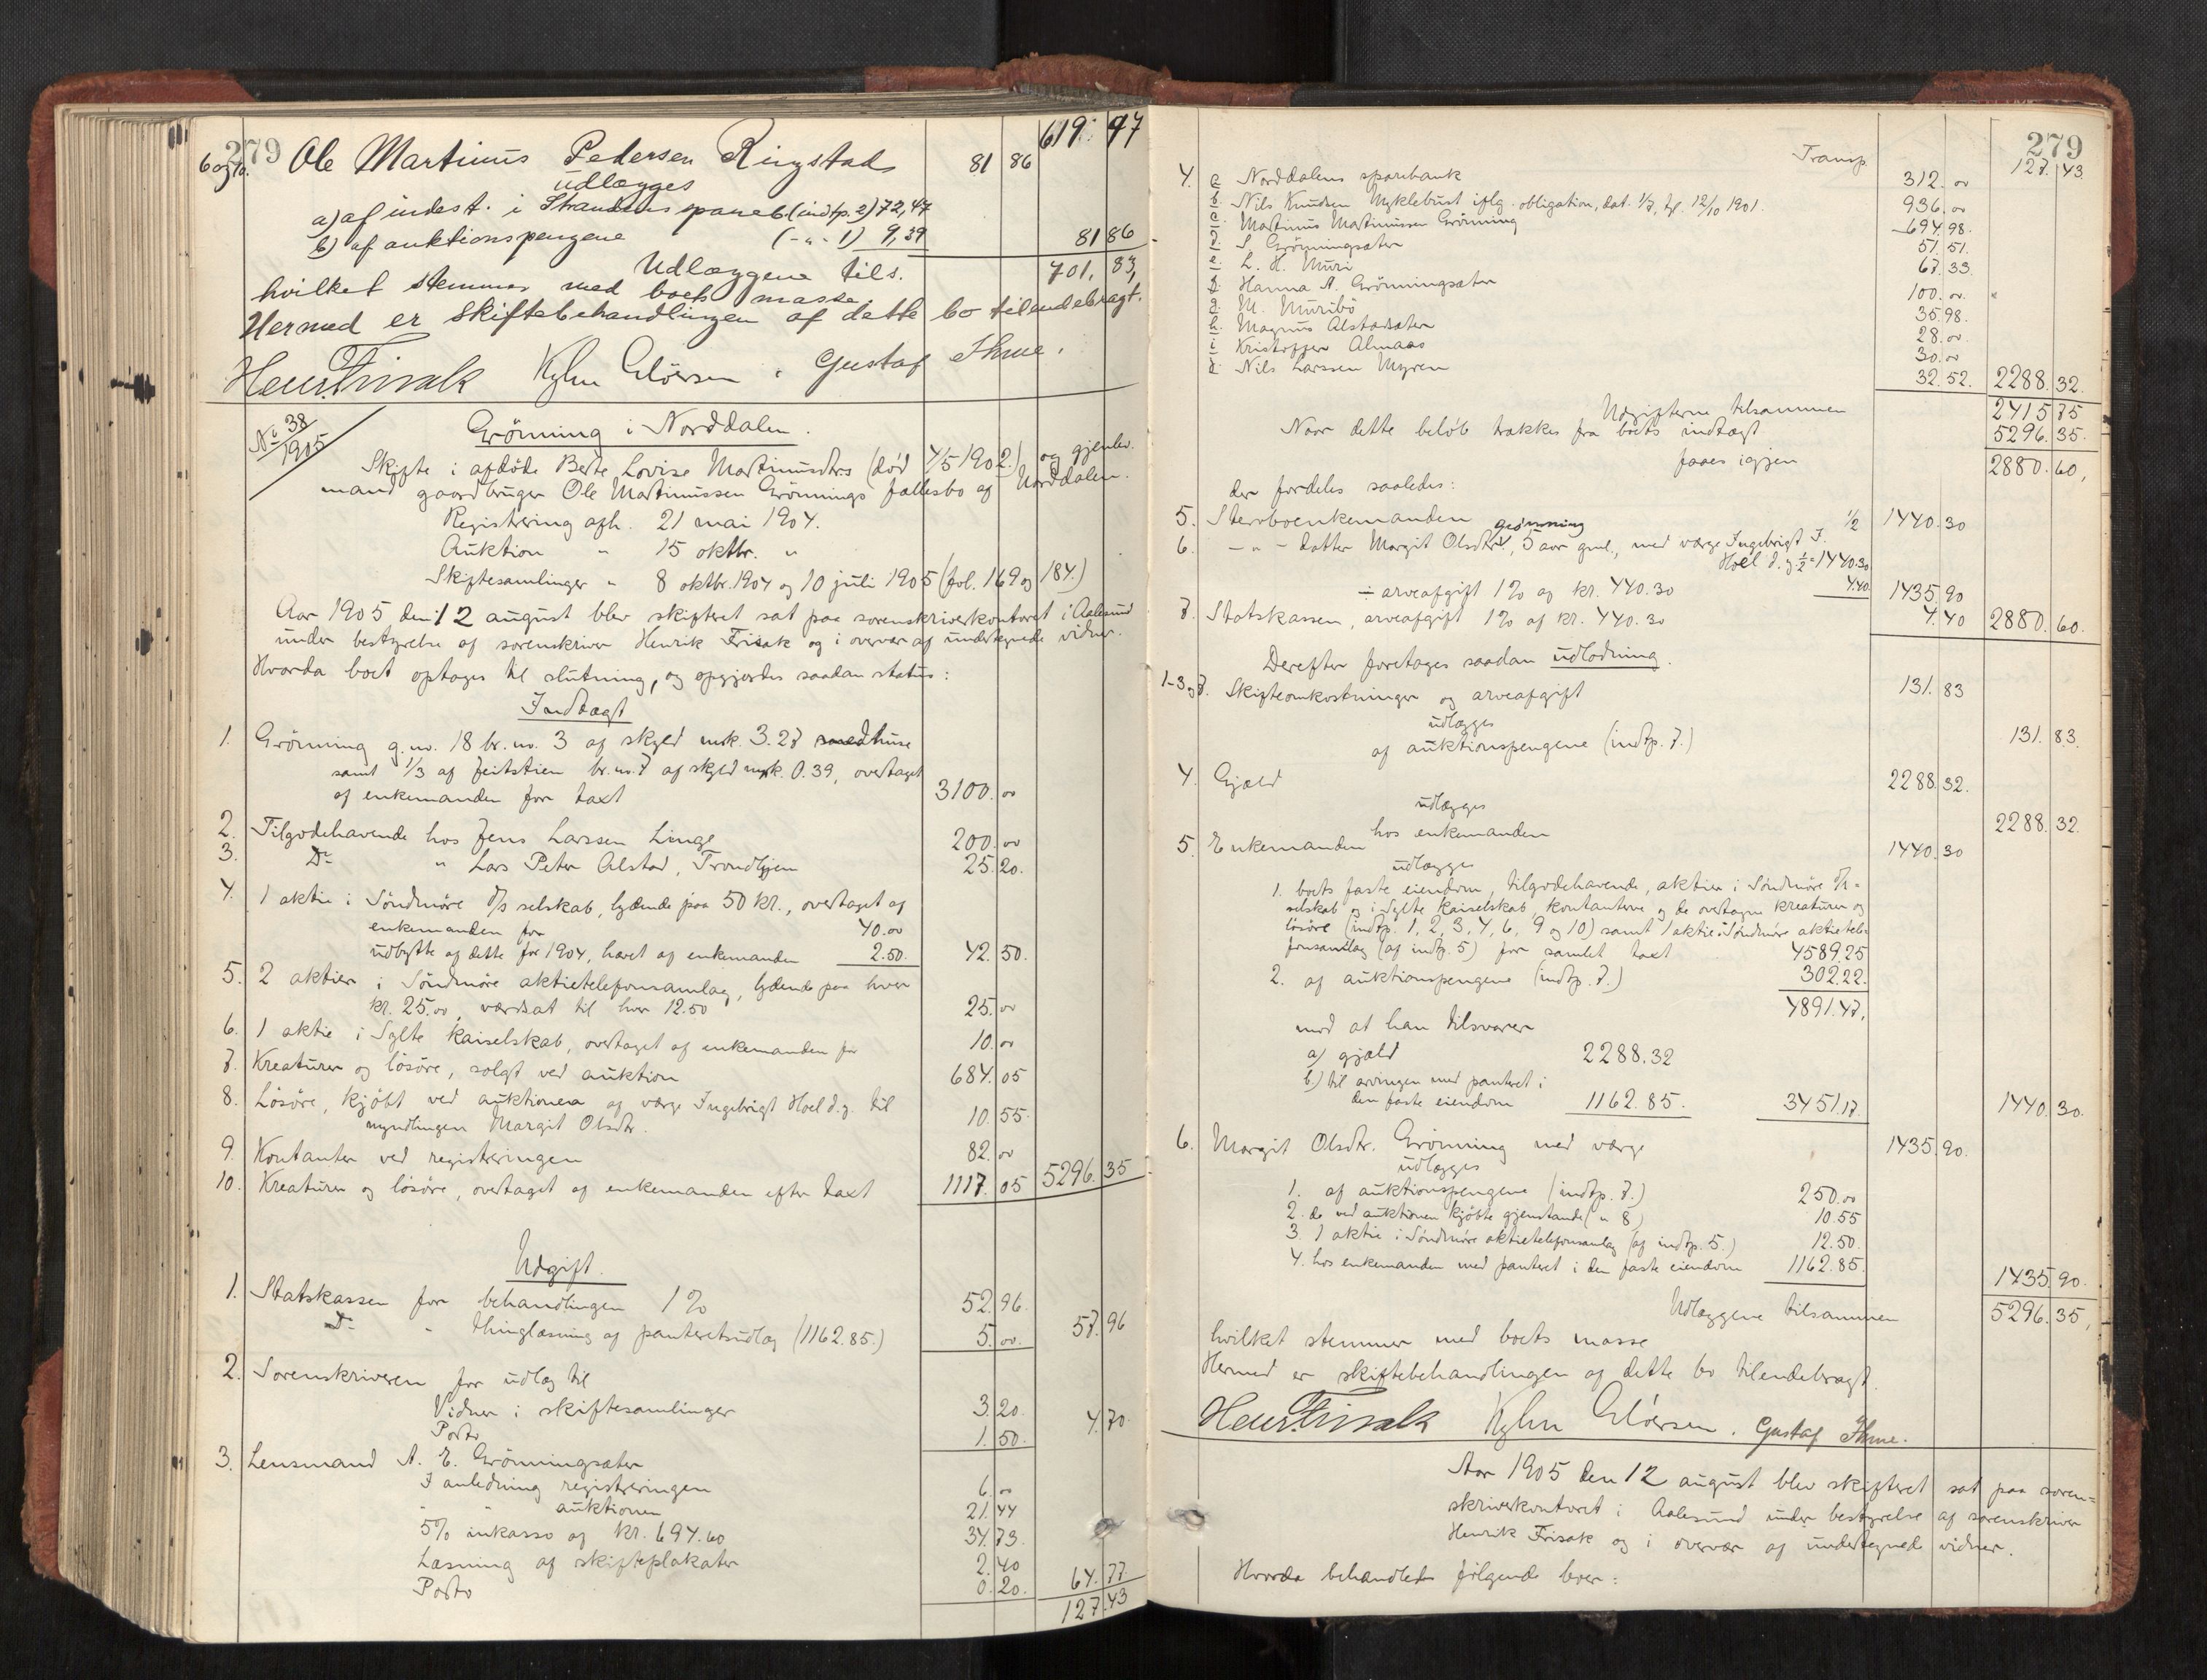 279
619. 97
6 og 10. Ole Martinus Pedersen Ringstad 81 86
udlægges
a) af indest. i Strandens spareb (indtp. 2) 72,47
b) af auktionspengene (-"- 1) 9,39 81 86
Udlæggene tils. 701. 83,
hvilket stemmer med boets masse.
Hermed er skiftebehandlingen af dette bo tilendebragt.
Henr. Frisak Gustaf Thue.
No 38/1905
Grönning i Norddalen.
Skifte i afdöde Berte Lovise Martinusdtrs (död 4/5 1902) og gjenlev.
mand gaardbruger Ole Martinussen Grönnings fællesbo af Norddalen.
Registrering afh. 21 mai 1904.
Auktion " 15 oktbr. "
Skiftesamlinger " 8 oktbr. 1904 og 10 juli 1905 (fol. 169 og 184.)
Aar 1905 den 12 august blev skifteret sat paa sorenskriverkontoret i Aalesund
under bestyrelse af sorenskriver Henrik Frisak og i overvær af undertegnede vidner.
Hvorda boet optages til slutning, og opgjordes saadan status:
Indtægt
1. Grönning g.no. 18 br.no. 3 af skyld mrk. 3.27 med huse
samt 1/3 af br.no. 7 af skyld mrk. 0.39, overtaget
af enkemanden for taxt 3100. oo
2. Tilgodehavende hos Jens Larssen Linge 200. oo
3. Do " Lars Peter Alstad, Trondhjem 25. 20.
4. 1 aktie i Söndmöre d/s selskab, lydende paa 50 kr., overtaget af
enkemanden for 40.oo
udbytte af dette for 1904, hævet af enkemanden 2.50. 42. 50.
5. 2 aktier i Söndmöre aktietelefonsamlag, lydende paa hver
kr. 25.oo, værdsat til hver 12.50 25. oo
6. 1 aktie i Sylte kaiselskab, overtaget af enkemanden for 10. oo
7. Kreaturer og lösöre, solgt ved auktion 684. 05
8. Lösöre, kjöbt ved auktionen af værge Ingebrigt Hoel d.y. til
myndlingen Margit Olsdtr. 10. 55.
9. Kontanter ved registreringen 82. oo
10. Kreaturer og lösöre, overtaget af enkemanden efter taxt 1117. 05 5296. 35
Udgift.
1. Statskassen for behandlingen 1% 52. 96.
Do " thinglæsning af panteretsudlæg (1162.85.) 5. oo. 57. 96
2. Sorenskriveren for udlæg til
Vidner i skiftesamlinger 3. 20.
Porto 1. 50. 4. 70.
3. Lensmand A. E. Grönningsæter
I anledning registreringen 6. oo
" " auktionen 21. 44
5% inkasso af kr. 694.60 34. 73.
Læsning af skifteplakater 2. 40
Porto 0. 20. 64. 77
127. 43
279
Transp. 127. 43.
4. a. Norddalens sparebank 312. oo
b. Nils Knudsen Myklebust iflg. obligation, dat. 1/7, tgl. 12/10 1901. 936. oo
c. Martinus Martinussen Grönning 694. 98.
d. S. Grönningsæter 51. 51.
e. L. H. Muri 67. 33.
f. Hanna A. Grönningsæter 100. oo.
g. M. Muribö 35. 98.
h. Magnus Alstadsæter 28. oo.
i. Kristoffer Almaas 30. oo
j. Nils Larssen Myren 32. 52. 2288. 32.
Udgifterne tilsammen 2415 75
Naar dette belöb trækkes fra boets indtægt 5296. 35.
faaes igjen 2880. 60,
der fordeles saaledes:
5. Sterboenkemanden 1/2 1440. 30
6. -"- datter Margit Olsdtr. Grönning, 5 aar gml., med værge Ingebrigt I.
Hoel d.y. 1/2 = 1440.30
÷ arveafgift 1% af kr. 440.30 4.40. 1435. 90
7. Statskassen, arveafgift 1% af kr. 440.30 4. 40 2880. 60.
Derefter foretages saadan udlodning.
1-3 og 7. Skifteomkostninger og arveafgift 131. 83
udlægges
af auktionspengene (indtp. 7.) 131. 83.
4. Gjæld 2288. 32.
udlægges
hos enkemanden 2288. 32.
5. Enkemanden 1440. 30
udlægges
1. boets faste eiendom, tilgodehavende, aktier i Söndmöre d/s=
selskab og i Sylte kaiselskab, kontanterne og de overtagne kreaturer og
lösöre (indtp. 1, 2, 3, 4, 6, 9 og 10) samt 1 aktie i Söndmöre aktietele=
fonsamlag (af indtp. 5) for samlet taxt 4589.25
2. af auktionspengene (indtp. 7.) 302.22.
4891.47,
mod at han tilsvarer
a) gjæld 2288.32
b.) til arvingen med panteret i
den faste eiendom 1162.85. 3451.17. 1440. 30.
6. Margit Olsdtr. Grönning med værge 1435. 90.
udlægges
1. af auktionspengene (indtp. 7.) 250.oo
2. de ved auktionen kjöbte gjenstande (" 8) 10.55
3. 1 aktie i Söndmöre aktietelefonsamlag (af indtp. 5.) 12.50.
4. hos enkemanden med panteret i den faste eiendom 1162.85. 1435. 90.
Udlæggene tilsammen 5296. 35,
hvilket stemmer med boets masse
Hermed er skiftebehandlingen af dette bo tilendebragt.
Henr. Frisak Gustaf Thue.
Aar 1905 den 12 august blev skifteret sat paa soren=
skriverkontoret i Aalesund under bestyrelse af sorenskriver
Henrik Frisak og i overvær af undertegnede vidner.
Hvorda behandledes fölgende boer: